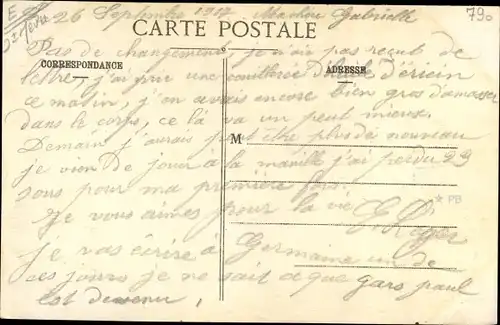 26 Septembre 1917 Gabrielle
790
CARTE POSTALE
Pas de changement je n'ai pas reçut de
CORRESPONDANCE
ADRESSE
lettre, j'ai prie une cuillère d'huile d'éricin
ce matin, j'en avais encore bien gros d'amasser
dans le corps, ce la va un peut mieux.
Demain j'aurais peut être plus de nouveau
M
je vien de jouer à la manille j'ai perdu 23
sous pour ma première fois.
PB
Je vous aimes pour la vie
G. Roger
je vas écrire à Germaine un de
ces jours je ne sait ce que gars paul
est devenu,